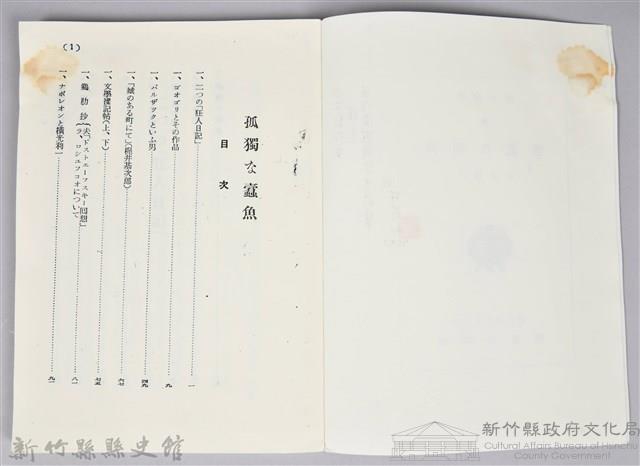 孤獨な蠹魚
目次
一、二つの「狂人日記」 一
一、ゴオゴリとその作品 九
一、バルザックといふ男 四九
一、「城のある町にて」(梶井基次郎) 六七
一、文學襍記帖(上、下) 七五
一、鷄肋抄(夫「ドストエーフスキー回想」
ラ、ロシュフコオについて) 八一
一、ナポレオンと橫光利一 九一
(1)
新竹縣縣史館
新竹縣政府文化局
Cultural Affairs Bureau of Hsinchu
County Government